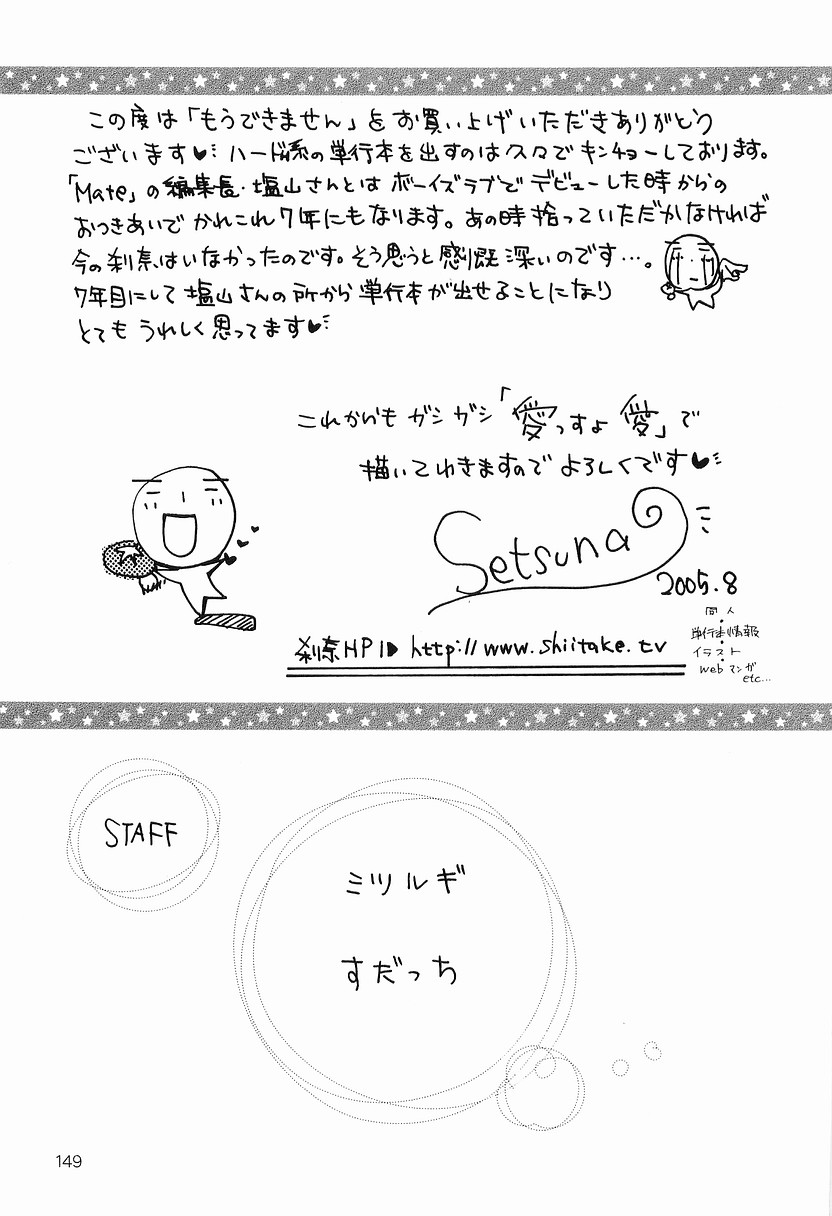 この度は「もうできません」をお買い上げいただきありがとう
ございます♥ ハード系の単行本を出すのは久々でキンチョーしております。
「Mate」の編集長・塩山さんとはボーイズラブでデビューした時からの
おつきあいでかれこれ7年にもなります。あの時拾っていただかなければ
今の刹奈はいなかったのです。そう思うと感慨深いのです…。
7年目にして塩山さんの所から単行本が出せることになり
とてもうれしく思ってます♥
これからもガシガシ「愛っすよ愛」で
描いてゆきますのでよろしくです♥
Setsuna
2005.8
刹奈HP http://www.shiitake.tv
同人
単行本情報
イラスト
webマンガ
etc...
STAFF
ミツルギ
すだっち
149